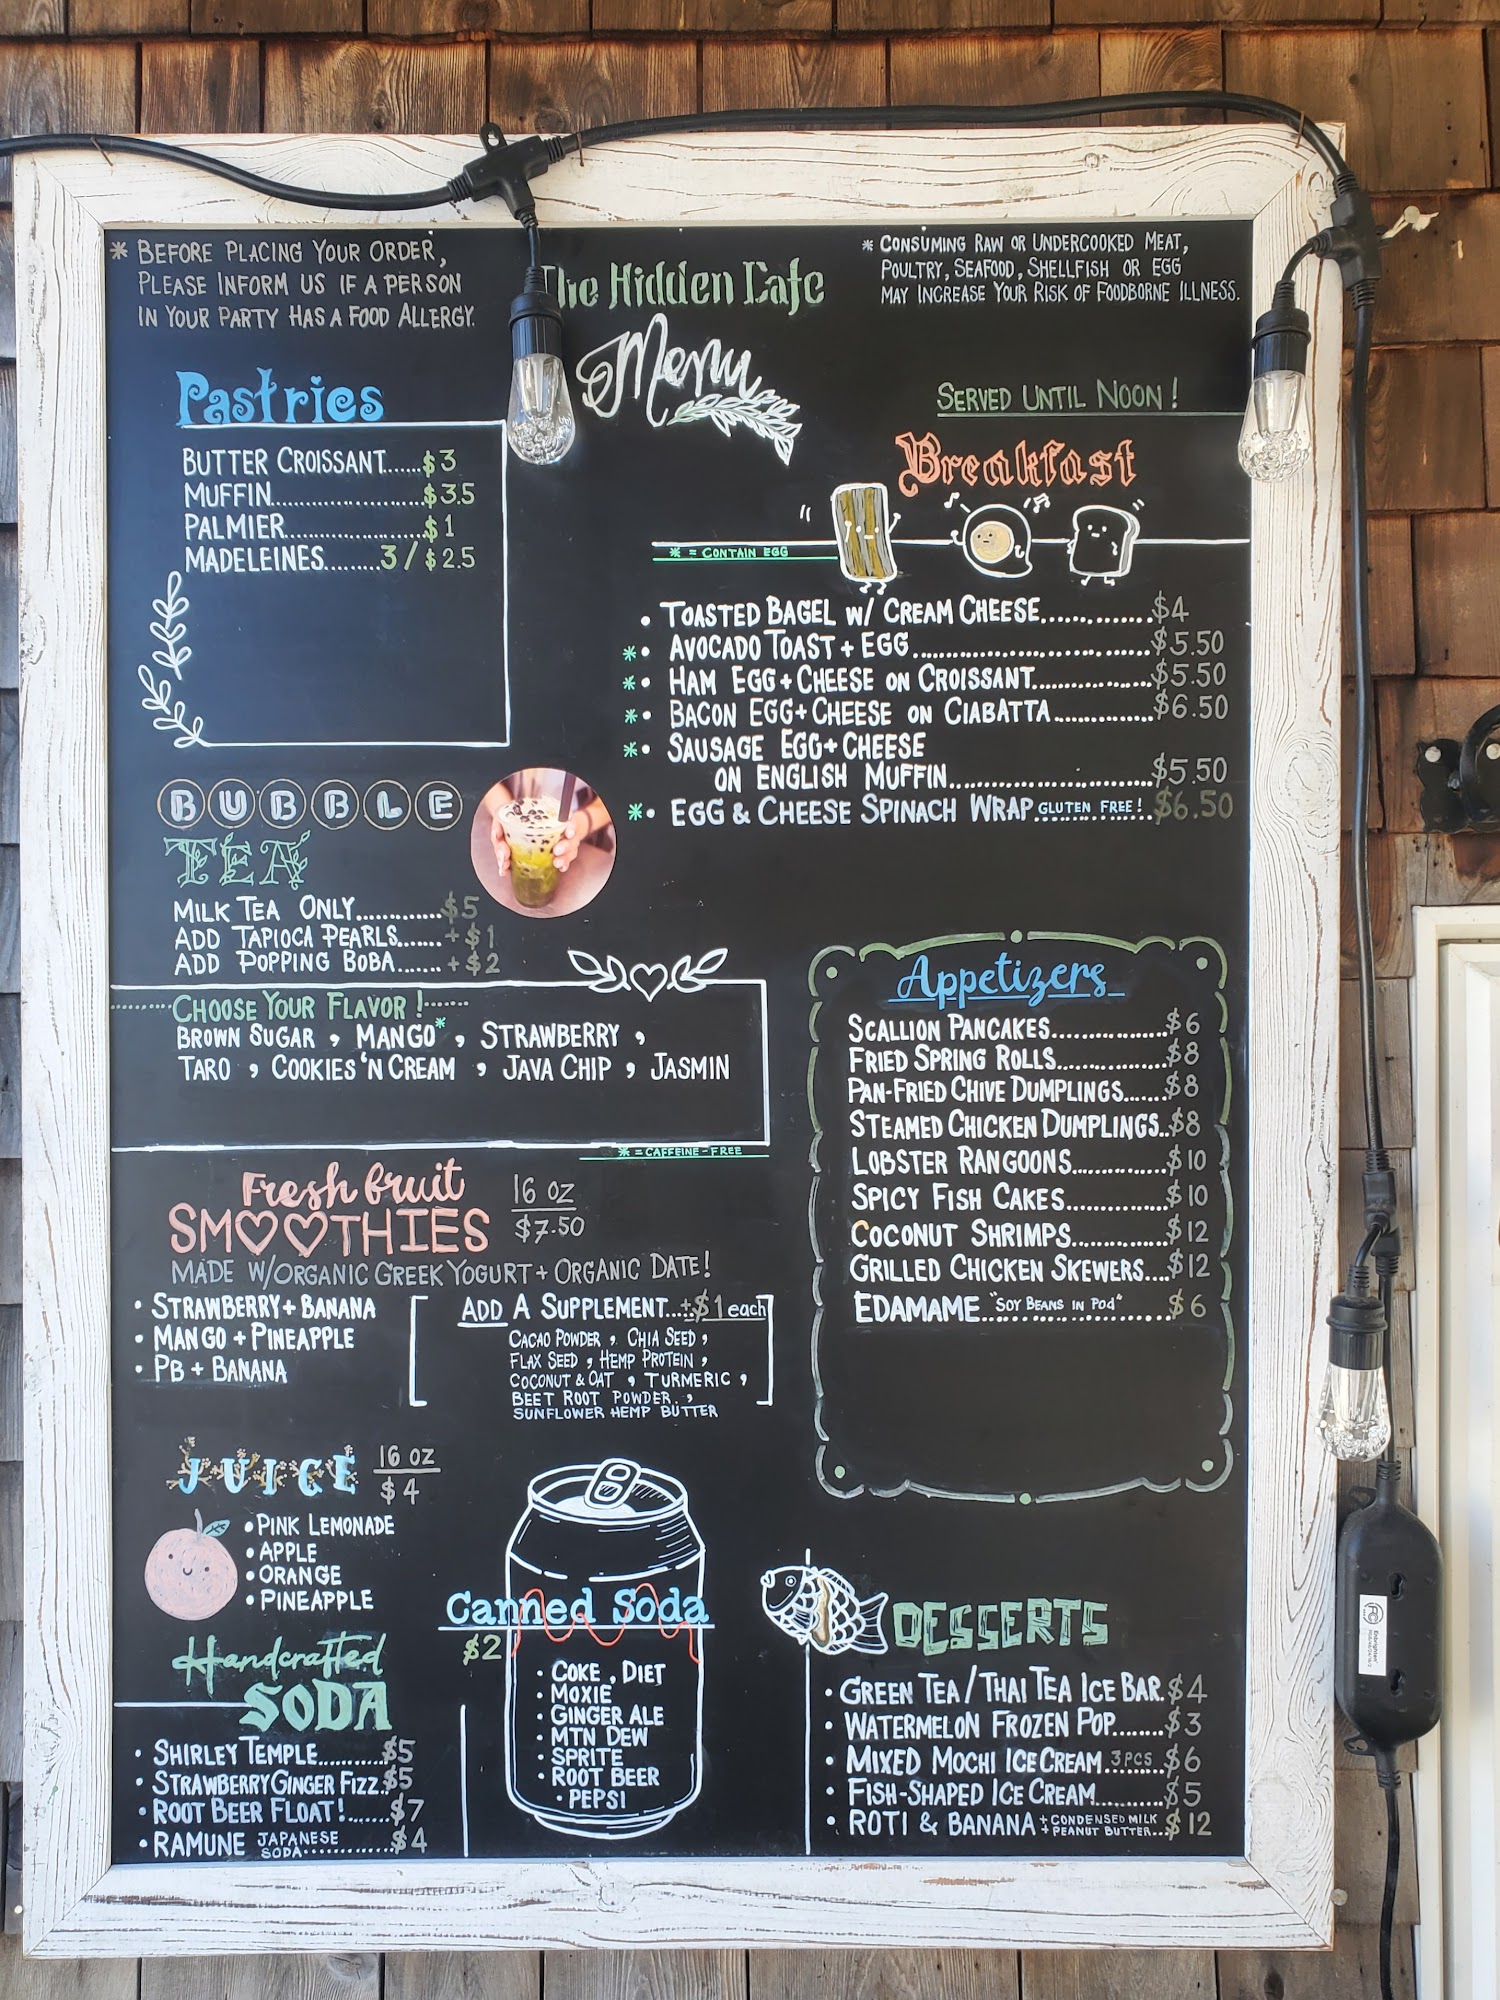 * BEFORE PLACING YOUR ORDER,
PLEASE INFORM US IF A PERSON
IN YOUR PARTY HAS A FOOD ALLERGY.
The Hidden Cafe
Menu
* CONSUMING RAW OR UNDERCOOKED MEAT,
POULTRY, SEAFOOD, SHELLFISH OR EGG
MAY INCREASE YOUR RISK OF FOODBORNE ILLNESS.
Pastries
BUTTER CROISSANT......$3
MUFFIN......................$3.5
PALMIER.....................$1
MADELEINES.........3/$2.5
SERVED UNTIL NOON!
Breakfast
* = CONTAIN EGG
• TOASTED BAGEL W/ CREAM CHEESE..............$4
*• AVOCADO TOAST + EGG..............................$5.50
*• HAM EGG + CHEESE ON CROISSANT.................$5.50
*• BACON EGG + CHEESE ON CIABATTA..............$6.50
*• SAUSAGE EGG + CHEESE
ON ENGLISH MUFFIN............................$5.50
*• EGG & CHEESE SPINACH WRAP GLUTEN FREE! $6.50
BUBBLE
TEA
MILK TEA ONLY.............$5
ADD TAPIOCA PEARLS.......+$1
ADD POPPING BOBA.......+$2
CHOOSE YOUR FLAVOR!
BROWN SUGAR, MANGO*, STRAWBERRY,
TARO, COOKIES 'N CREAM, JAVA CHIP, JASMIN
* = CAFFEINE-FREE
Appetizers
SCALLION PANCAKES...............$6
FRIED SPRING ROLLS...............$8
PAN-FRIED CHIVE DUMPLINGS.......$8
STEAMED CHICKEN DUMPLINGS..$8
LOBSTER RANGOONS.............$10
SPICY FISH CAKES..............$10
COCONUT SHRIMPS..............$12
GRILLED CHICKEN SKEWERS....$12
EDAMAME "SOY BEANS IN POD" $6
Fresh fruit
SMOOTHIES
16 OZ
$7.50
MADE W/ORGANIC GREEK YOGURT + ORGANIC DATE!
• STRAWBERRY + BANANA
• MANGO + PINEAPPLE
• PB + BANANA
ADD A SUPPLEMENT...+$1 each
CACAO POWDER, CHIA SEED,
FLAX SEED, HEMP PROTEIN,
COCONUT & OAT, TURMERIC,
BEET ROOT POWDER,
SUNFLOWER HEMP BUTTER
JUICE
16 OZ
$4
• PINK LEMONADE
• APPLE
• ORANGE
• PINEAPPLE
Handcrafted
SODA
• SHIRLEY TEMPLE...........$5
• STRAWBERRY GINGER FIZZ.$5
• ROOT BEER FLOAT!......$7
• RAMUNE JAPANESE
SODA............$4
Canned Soda
$2
• COKE, DIET
• MOXIE
• GINGER ALE
• MTN DEW
• SPRITE
• ROOT BEER
• PEPSI
DESSERTS
• GREEN TEA / THAI TEA ICE BAR.$4
• WATERMELON FROZEN POP.......$3
• MIXED MOCHI ICE CREAM 3PCS $6
• FISH-SHAPED ICE CREAM..........$5
• ROTI & BANANA + CONDENSED MILK
+ PEANUT BUTTER...$12